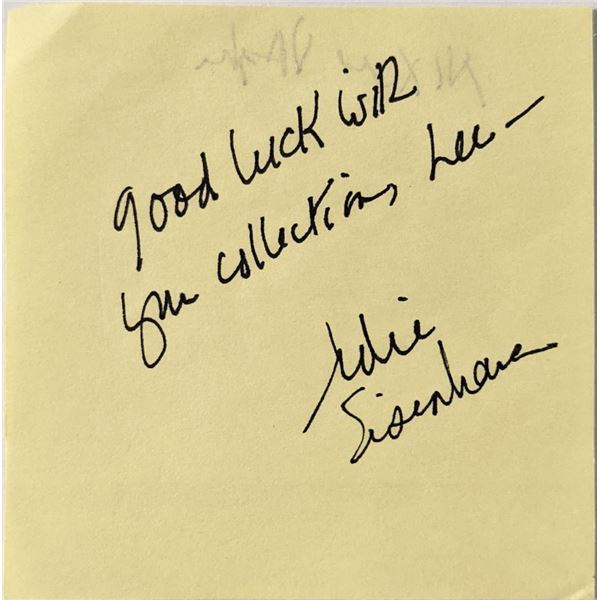 good luck with
your collections, Lee –
Julie
Eisenhower